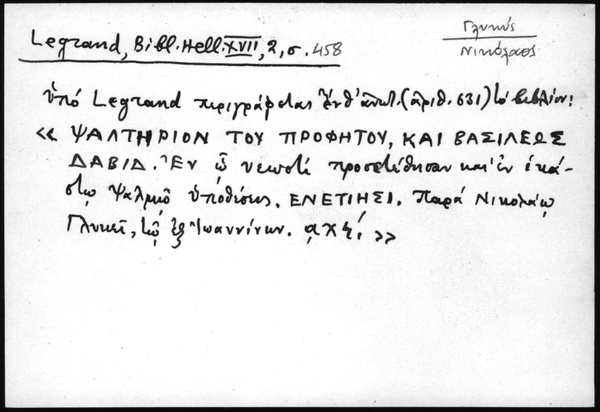 Γλυκύς
Νικόλαος
Legrand, Bibl. Hell. XVII, 2, σ. 458
ὑπό Legrand περιγράφεται (ἀριθ. 631) τό βιβλίον:
« ΨΑΛΤΗΡΙΟΝ ΤΟΥ ΠΡΟΦΗΤΟΥ, ΚΑΙ ΒΑΣΙΛΕΩΣ
ΔΑΒΙΔ. Ἐν ᾧ νεωστί προσετέθησαν καί ἐν ἑκά-
στῳ ψαλμῷ ὑποθέσεις. ΕΝΕΤΙΗΣΙ. Παρά Νικολάῳ
Γλυκεῖ, τῷ ἐξ Ἰωαννίνων. »